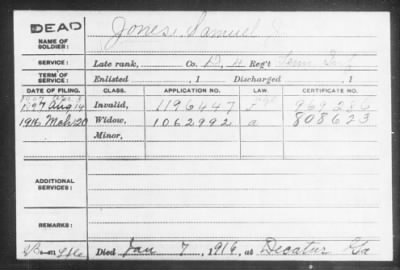 DEAD
NAME OF SOLDIER: Jones, Samuel
SERVICE: Late rank, Co. D, 4 Reg't Tenn Inf
TERM OF SERVICE: Enlisted , 1 Discharged , 1
DATE OF FILING. CLASS. APPLICATION NO. LAW. CERTIFICATE NO.
1897 Aug 14 Invalid, 1196447 969286
1916 Mch 20 Widow, 1062992 a 808623
Minor,
ADDITIONAL SERVICES:
REMARKS:
Died Jan 7, 1916, at Decatur Ga